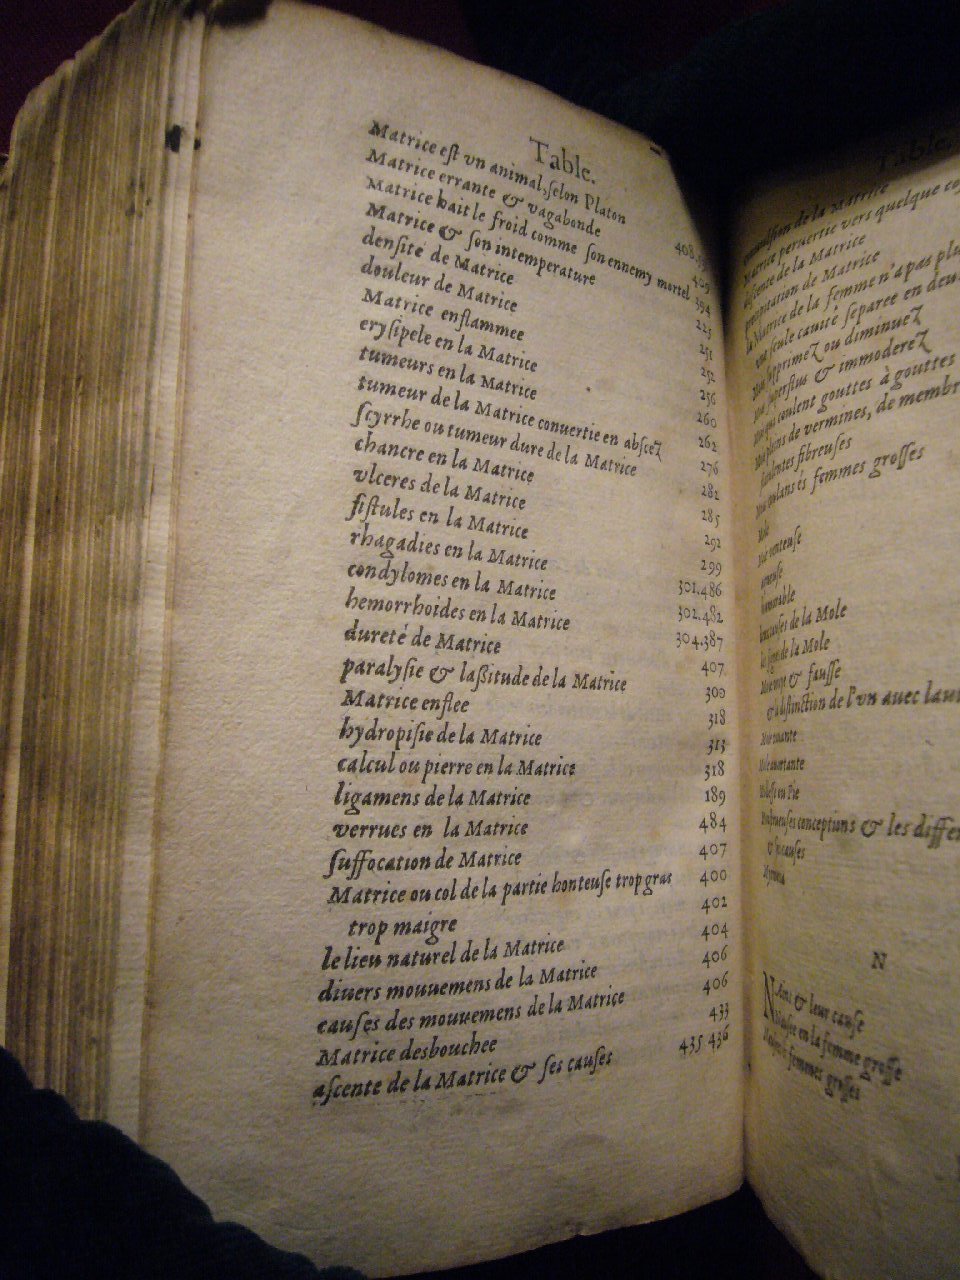 Table.
Matrice eſt vn animal, ſelon Platon 408.
Matrice errante & vagabonde 409
Matrice hait le froid comme ſon ennemy mortel 394
Matrice & ſon intemperature 225
denſité de Matrice 251
douleur de Matrice 252
Matrice enflammee 256
eryſipele en la Matrice 260
tumeurs en la Matrice 262
tumeur de la Matrice conuertie en abſcez 276
ſcyrrhe ou tumeur dure de la Matrice 282
chancre en la Matrice 285
vlceres de la Matrice 292
fiſtules en la Matrice 299
rhagadies en la Matrice 301.486
condylomes en la Matrice 302.482
hemorrhoides en la Matrice 304.387
dureté de Matrice 407
paralyſie & laſſitude de la Matrice 300
Matrice enflee 318
hydropiſie de la Matrice 313
calcul ou pierre en la Matrice 318
ligamens de la Matrice 189
verrues en la Matrice 484
ſuffocation de Matrice 407
Matrice ou col de la partie honteuſe trop gras 400
trop maigre 402
le lieu naturel de la Matrice 404
diuers mouuemens de la Matrice 406
cauſes des mouuemens de la Matrice 406
Matrice desbouchee 433
aſcente de la Matrice & ſes cauſes 435.436
Table.
de la Matrice
Matrice peruertie vers quelque
deſcente de la Matrice
precipitation de Matrice
la Matrice de la femme n'a pas
vne ſeule cauité ſeparee en
ſupprimez ou diminuez
ſuperflus & immoderez
qui coulent gouttes à gouttes
pleins de vermines, de
fibreuſes
és femmes groſſes
Mole
venteuſe
de la Mole
de la Mole
& fauſſe
& diſtinction de l'vn auec
en Pie
conceptions & les
& cauſes
N
Nains & leur cauſe
en la femme groſſe
femmes groſſes